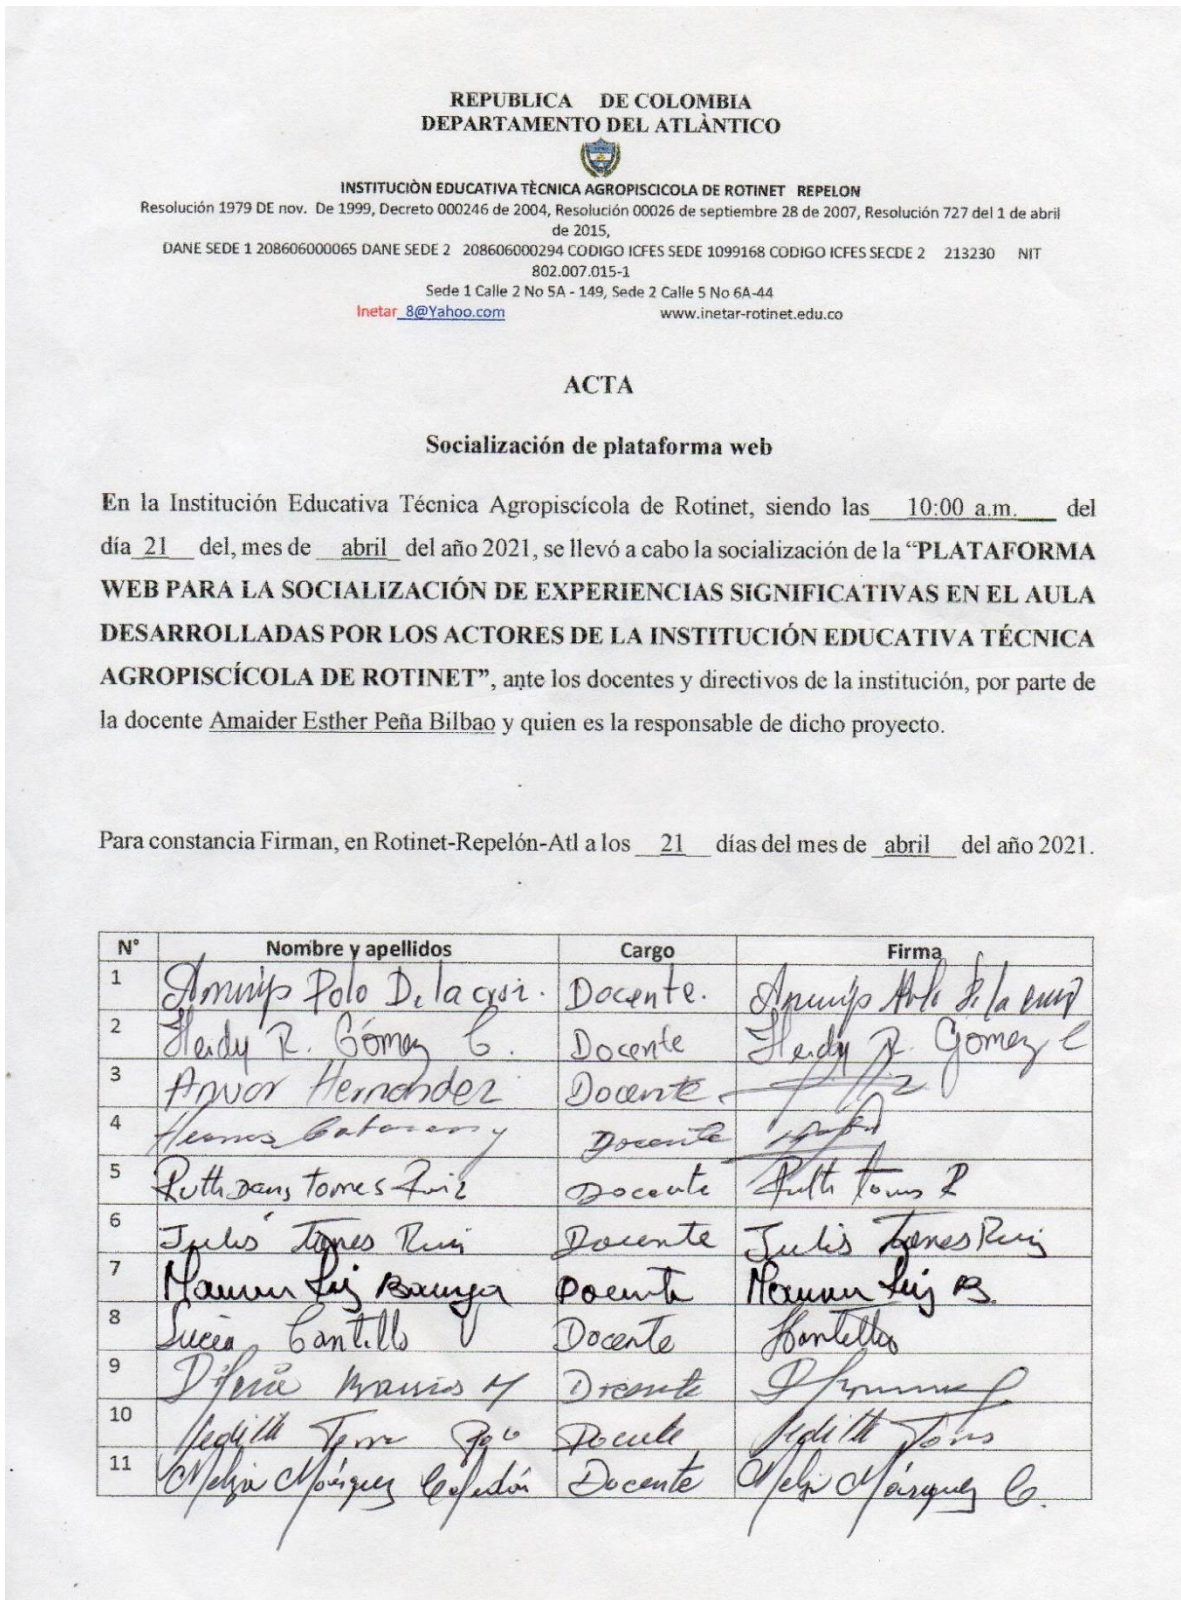 REPUBLICA DE COLOMBIA
DEPARTAMENTO DEL ATLÀNTICO
INSTITUCIÒN EDUCATIVA TÈCNICA AGROPISCICOLA DE ROTINET REPELON
Resolución 1979 DE nov. De 1999, Decreto 000246 de 2004, Resolución 00026 de septiembre 28 de 2007, Resolución 727 del 1 de abril
de 2015,
DANE SEDE 1 208606000065 DANE SEDE 2 208606000294 CODIGO ICFES SEDE 1099168 CODIGO ICFES SECDE 2 213230 NIT
802.007.015-1
Sede 1 Calle 2 No 5A - 149, Sede 2 Calle 5 No 6A-44
Inetar_8@Yahoo.com www.inetar-rotinet.edu.co
ACTA
Socialización de plataforma web
En la Institución Educativa Técnica Agropiscícola de Rotinet, siendo las 10:00 a.m. del
día 21 del, mes de abril del año 2021, se llevó a cabo la socialización de la “PLATAFORMA
WEB PARA LA SOCIALIZACIÓN DE EXPERIENCIAS SIGNIFICATIVAS EN EL AULA
DESARROLLADAS POR LOS ACTORES DE LA INSTITUCIÓN EDUCATIVA TÉCNICA
AGROPISCÍCOLA DE ROTINET”, ante los docentes y directivos de la institución, por parte de
la docente Amaider Esther Peña Bilbao y quien es la responsable de dicho proyecto.
Para constancia Firman, en Rotinet-Repelón-Atl a los 21 días del mes de abril del año 2021.
N° Nombre y apellidos Cargo Firma
1 Polo De la cruz. Docente. De la cruz
2 Heidy R. Gómez C. Docente Heidy R. Gómez C
3 Hernandez Docente
4 Docente
5 Ruth Torres Ruiz Docente Ruth Torres R
6 Julis Torres Ruiz Docente Julis Torres Ruiz
7 Docente
8 Lucia Cantillo Docente
9 Barrios M Docente
10 Docente
11 Márquez Docente Márquez C.